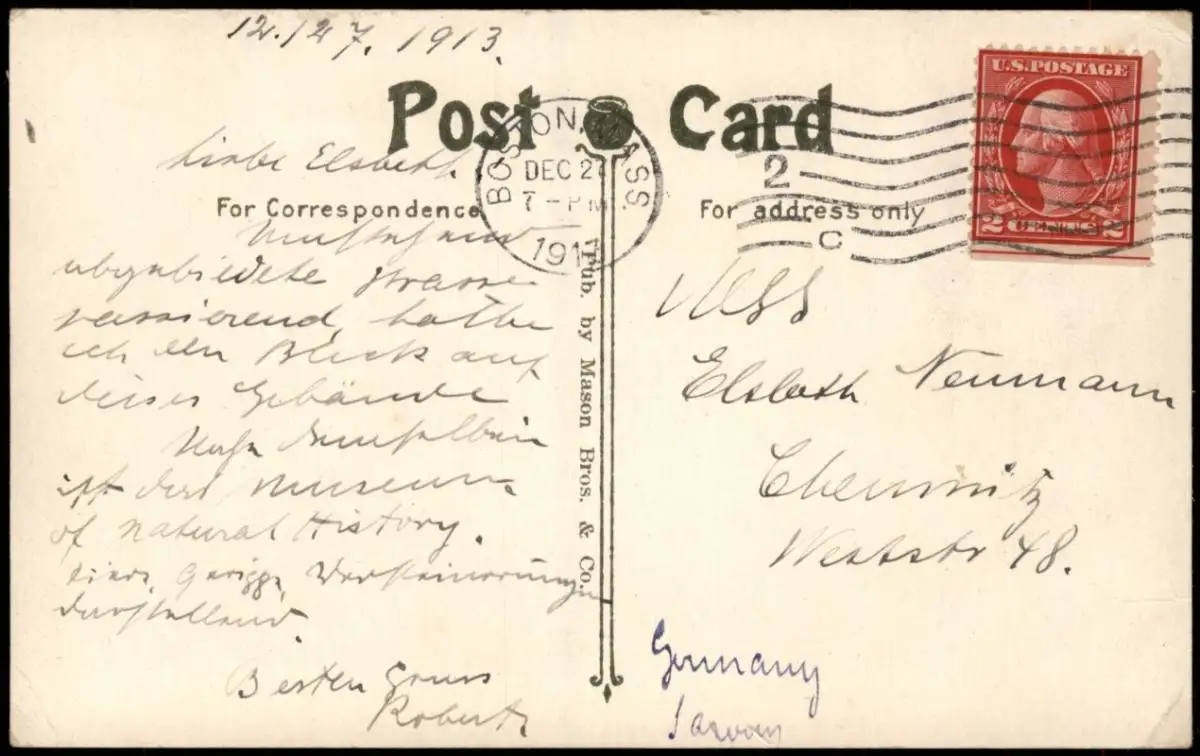 12./27. 1913.
Post Card
BOSTON, MASS.
DEC 27
7-PM
191
2
C
U.S. POSTAGE
2 CENTS 2
Liebe Elsbeth.
For Correspondence
For address only
umstehend
abgebildete Strasse
passierend, hatte
ich den Blick auf
dieses Gebäude
Nahe demselben
ist das Museum
of Natural History.
Tiere, Versteinerungen
darstellend.
Besten Gruss
Robert
Pub. by Mason Bros. & Co.
Miss
Elsbeth Neumann
Chemnitz
Weststr 48.
Germany